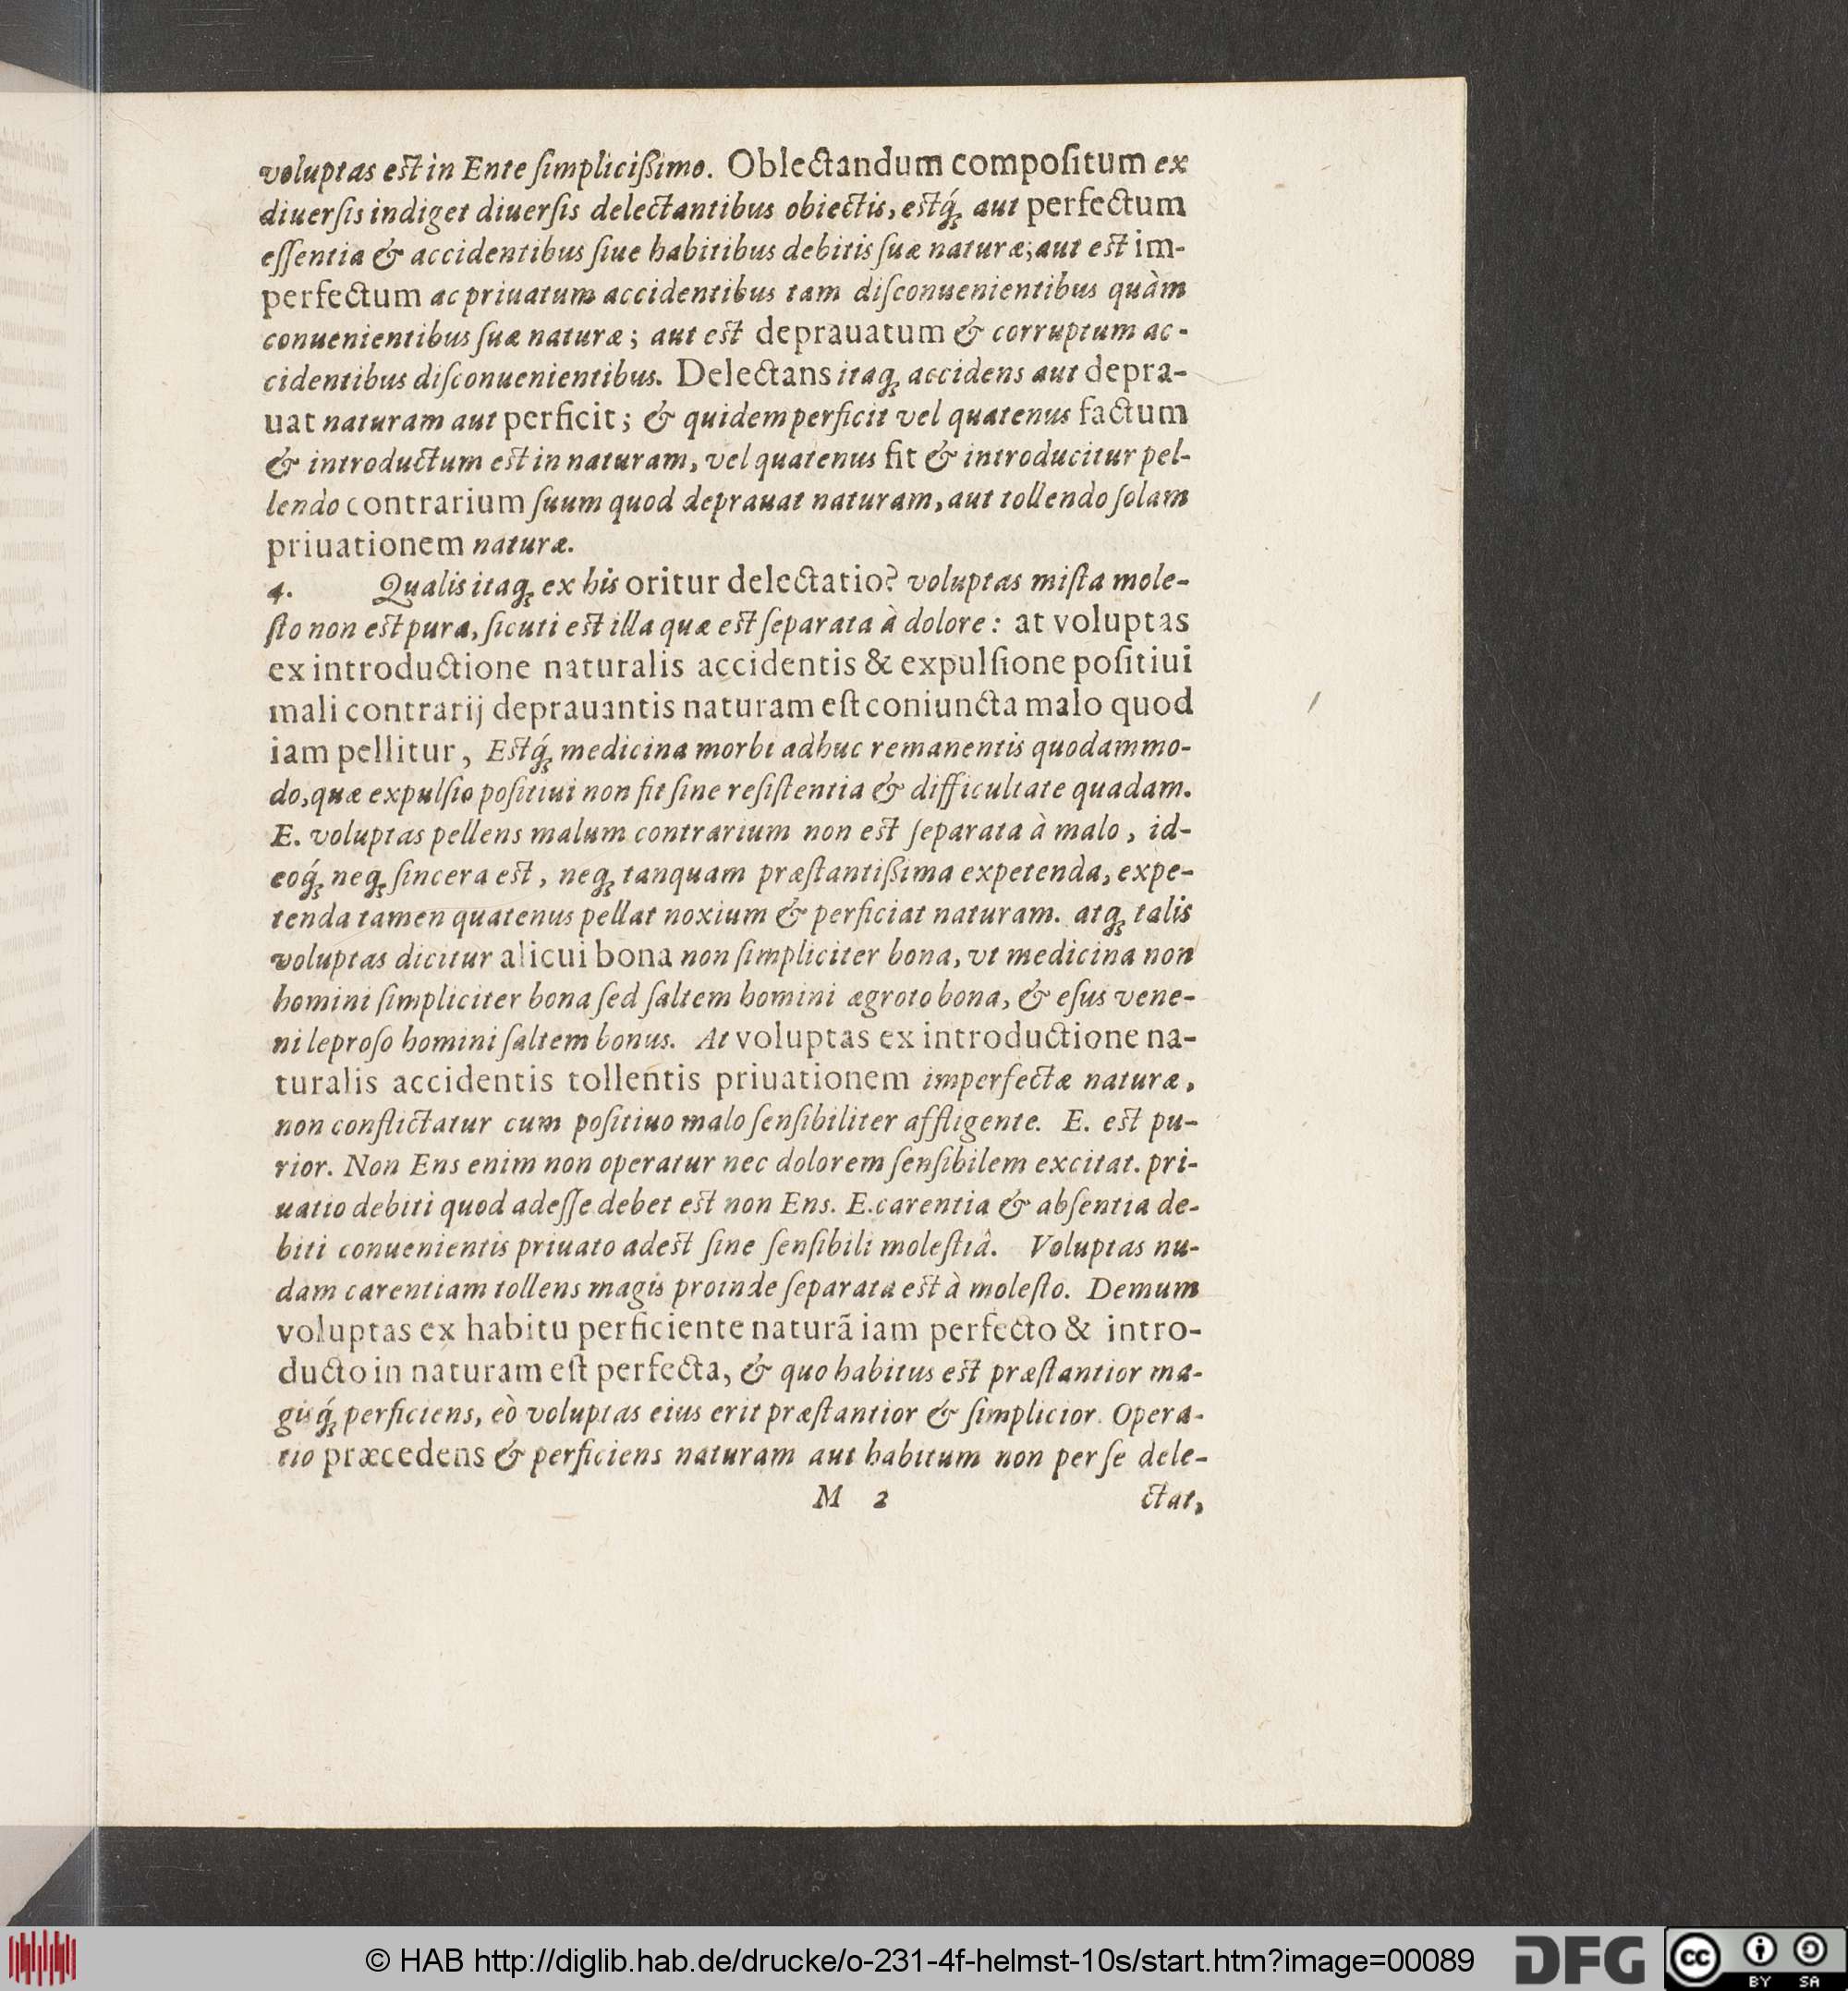 voluptas est in Ente ſimplicißimo. Oblectandum compoſitum ex
diuerſis indiget diuerſis delectantibus obiectis, estq́; aut perfectum
eſſentia & accidentibus ſiue habitibus debitis ſuæ naturæ; aut est im-
perfectum ac priuatum accidentibus tam diſconuenientibus quàm
conuenientibus ſuæ naturæ; aut est deprauatum & corruptum ac-
cidentibus diſconuenientibus. Delectans itaq; accidens aut depra-
uat naturam aut perficit; & quidem perficit vel quatenus factum
& introductum est in naturam, vel quatenus fit & introducitur pel-
lendo contrarium ſuum quod deprauat naturam, aut tollendo ſolam
priuationem naturæ.
4. Qualis itaq; ex his oritur delectatio? voluptas miſta mole-
ſto non est pura, ſicuti est illa quæ est ſeparata à dolore: at voluptas
ex introductione naturalis accidentis & expulſione poſitiui
mali contrarij deprauantis naturam eſt coniuncta malo quod
iam pellitur, Estq́; medicina morbi adhuc remanentis quodammo-
do, quæ expulſio poſitiui non fit ſine reſiſtentia & difficultate quadam.
E. voluptas pellens malum contrarium non est ſeparata à malo, id-
eoq́; neq; ſincera est, neq; tanquam præſtantißima expetenda, expe-
tenda tamen quatenus pellat noxium & perficiat naturam. atq; talis
voluptas dicitur alicui bona non ſimpliciter bona, vt medicina non
homini ſimpliciter bona ſed ſaltem homini ægroto bona, & eſus vene-
ni leproſo homini ſaltem bonus. At voluptas ex introductione na-
turalis accidentis tollentis priuationem imperfectæ naturæ,
non conflictatur cum poſitiuo malo ſenſibiliter affligente. E. est pu-
rior. Non Ens enim non operatur nec dolorem ſenſibilem excitat. pri-
uatio debiti quod adeſſe debet est non Ens. E. carentia & abſentia de-
biti conuenientis priuato adest ſine ſenſibili moleſtiâ. Voluptas nu-
dam carentiam tollens magis proinde ſeparata est à moleſto. Demum
voluptas ex habitu perficiente naturã iam perfecto & intro-
ducto in naturam eſt perfecta, & quo habitus est præſtantior ma-
gisq́; perficiens, eò voluptas eius erit præſtantior & ſimplicior. Opera-
tio præcedens & perficiens naturam aut habitum non per ſe dele-
M 2 ctat,
© HAB http://diglib.hab.de/drucke/o-231-4f-helmst-10s/start.htm?image=00089
DFG
cc BY SA